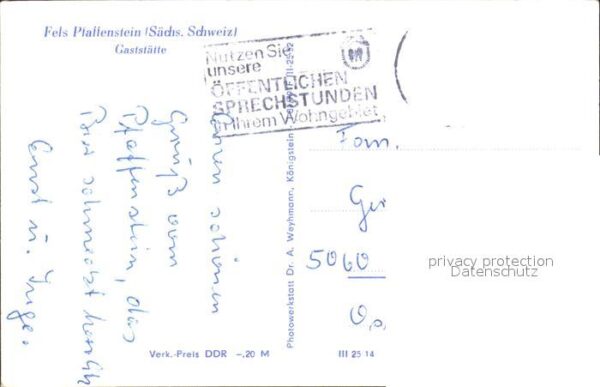 Fels Pfaffenstein (Sächs. Schweiz)
Gaststätte
Nutzen Sie
unsere
ÖFFENTLICHEN
SPRECHSTUNDEN
in Ihrem Wohngebiet
Einen schönen
Gruß vom
Pfaffenstein, das
Bier schmeckt herrlich
Ernst u. Inge.
Fam.
Ge
5060
Photowerkstatt Dr. A. Weyhmann, Königstein
privacy protection
Datenschutz
Verk.-Preis DDR -.20 M
III 25 14